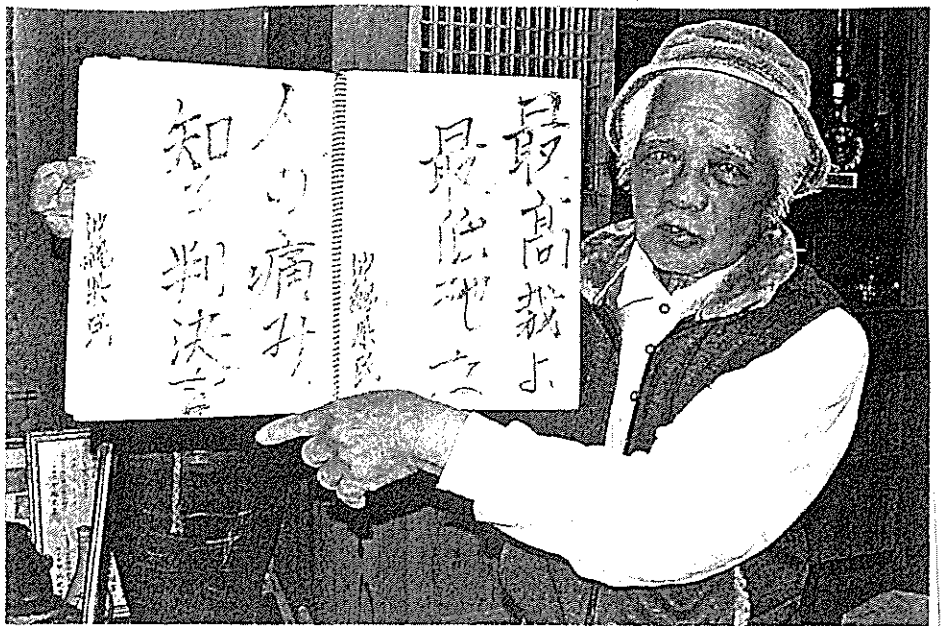 最高裁よ
最低地立
沖縄県民
人の痛み
知る判決言
沖縄県民